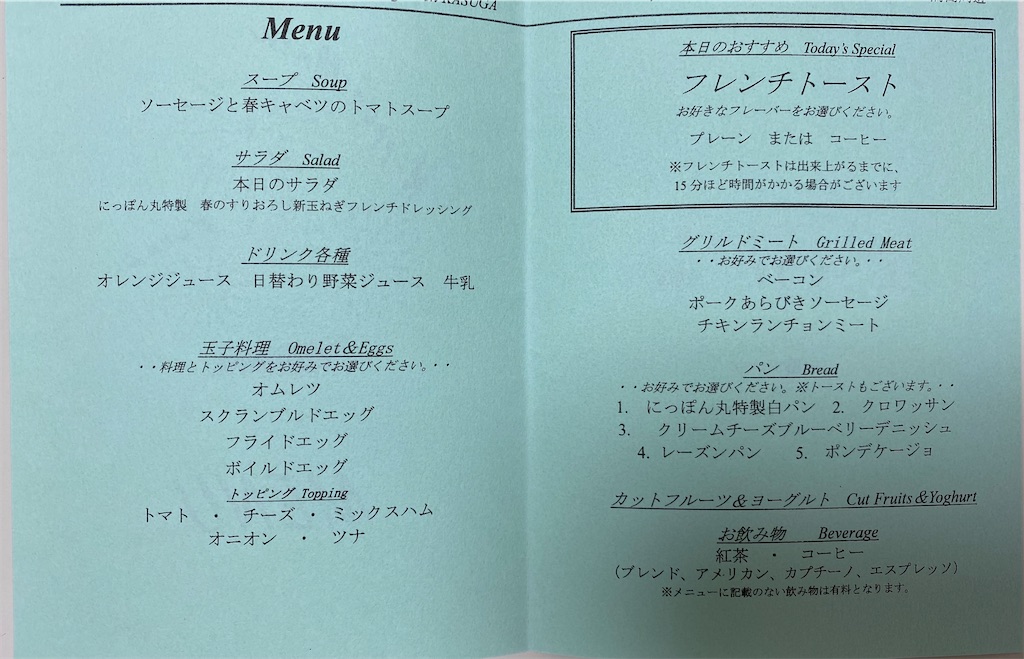 KASUGA
Menu
スープ Soup
ソーセージと春キャベツのトマトスープ
サラダ Salad
本日のサラダ
にっぽん丸特製 春のすりおろし新玉ねぎフレンチドレッシング
ドリンク各種
オレンジジュース 日替わり野菜ジュース 牛乳
玉子料理 Omelet&Eggs
・・料理とトッピングをお好みでお選びください。・・
オムレツ
スクランブルドエッグ
フライドエッグ
ボイルドエッグ
トッピング Topping
トマト ・ チーズ ・ ミックスハム
オニオン ・ ツナ
本日のおすすめ Today's Special
フレンチトースト
お好きなフレーバーをお選びください。
プレーン または コーヒー
※フレンチトーストは出来上がるまでに、
15分ほど時間がかかる場合がございます
グリルドミート Grilled Meat
・・お好みでお選びください。・・
ベーコン
ポークあらびきソーセージ
チキンランチョンミート
パン Bread
・・お好みでお選びください。※トーストもございます。・・
1. にっぽん丸特製白パン 2. クロワッサン
3. クリームチーズブルーベリーデニッシュ
4. レーズンパン 5. ポンデケージョ
カットフルーツ&ヨーグルト Cut Fruits &Yoghurt
お飲み物 Beverage
紅茶 ・ コーヒー
(ブレンド、アメリカン、カプチーノ、エスプレッソ)
※メニューに記載のない飲み物は有料となります。